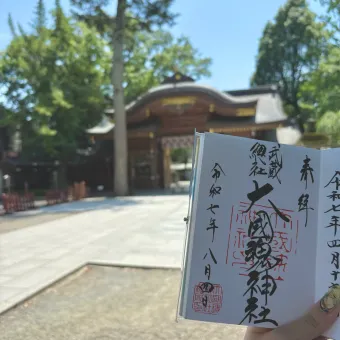 奉拝
武蔵
総社
大國魂神社
令和七年八月四日
令和七年四月